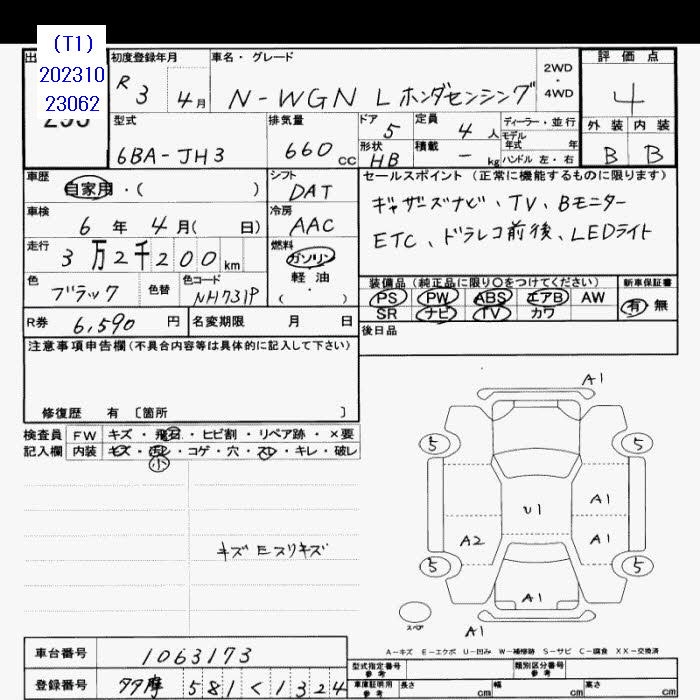 (T1)
202310
23062
初度登録年月
R3 4月
車名・グレード
N-WGN L ホンダセンシング
2WD
・
4WD
評価点
4
外装 内装
B B
型式
6BA-JH3
排気量
660cc
ドア
5
定員
4人
形状
HB
積載
- kg
ディーラー・並行
モデル
年式 年
ハンドル 左・右
車歴
自家用・( )
シフト
DAT
車検
6年4月( 日)
冷房
AAC
走行
3万2千200km
燃料
ガソリン
軽油
( ・ )
色
ブラック
色替
色コード
NH731P
R券 6,590円
名変期限 月 日
セールスポイント(正常に機能するものに限ります)
ギャザーズナビ、TV、Bモニター
ETC、ドラレコ前後、LEDライト
装備品(純正品に限り〇をつけてください)
新車保証書
PS PW ABS エアB AW
SR ナビ TV カワ
有 無
後日品
注意事項申告欄(不具合内容等は具体的に記入して下さい)
修復歴 有 〔箇所 〕
検査員
記入欄
FW キズ・飛石・ヒビ割・リペア跡・×要
内装 キズ・汚レ・コゲ・穴・スレ・キレ・破レ
小
キズEスリキズ
A1
5
5
U1
A1
A2
A1
5
5
A1
スペア
A1
A-キズ E-エクボ U-凹み W-補修跡 S-サビ C-腐食 XX-交換済
車台番号
1063173
登録番号
581く1324
型式指定番号
参考
類別区分番号
参考
車庫証明用
参考
長さ cm
幅 cm
高さ cm